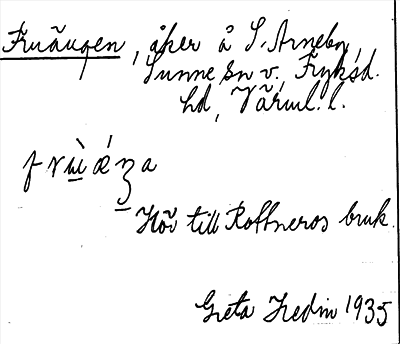 Fruängen, åker å S. Arneby,
Sunne sn v., Fryksd.
hd, Värml. l.
Hör till Rottneros bruk.
Greta Hedin 1935